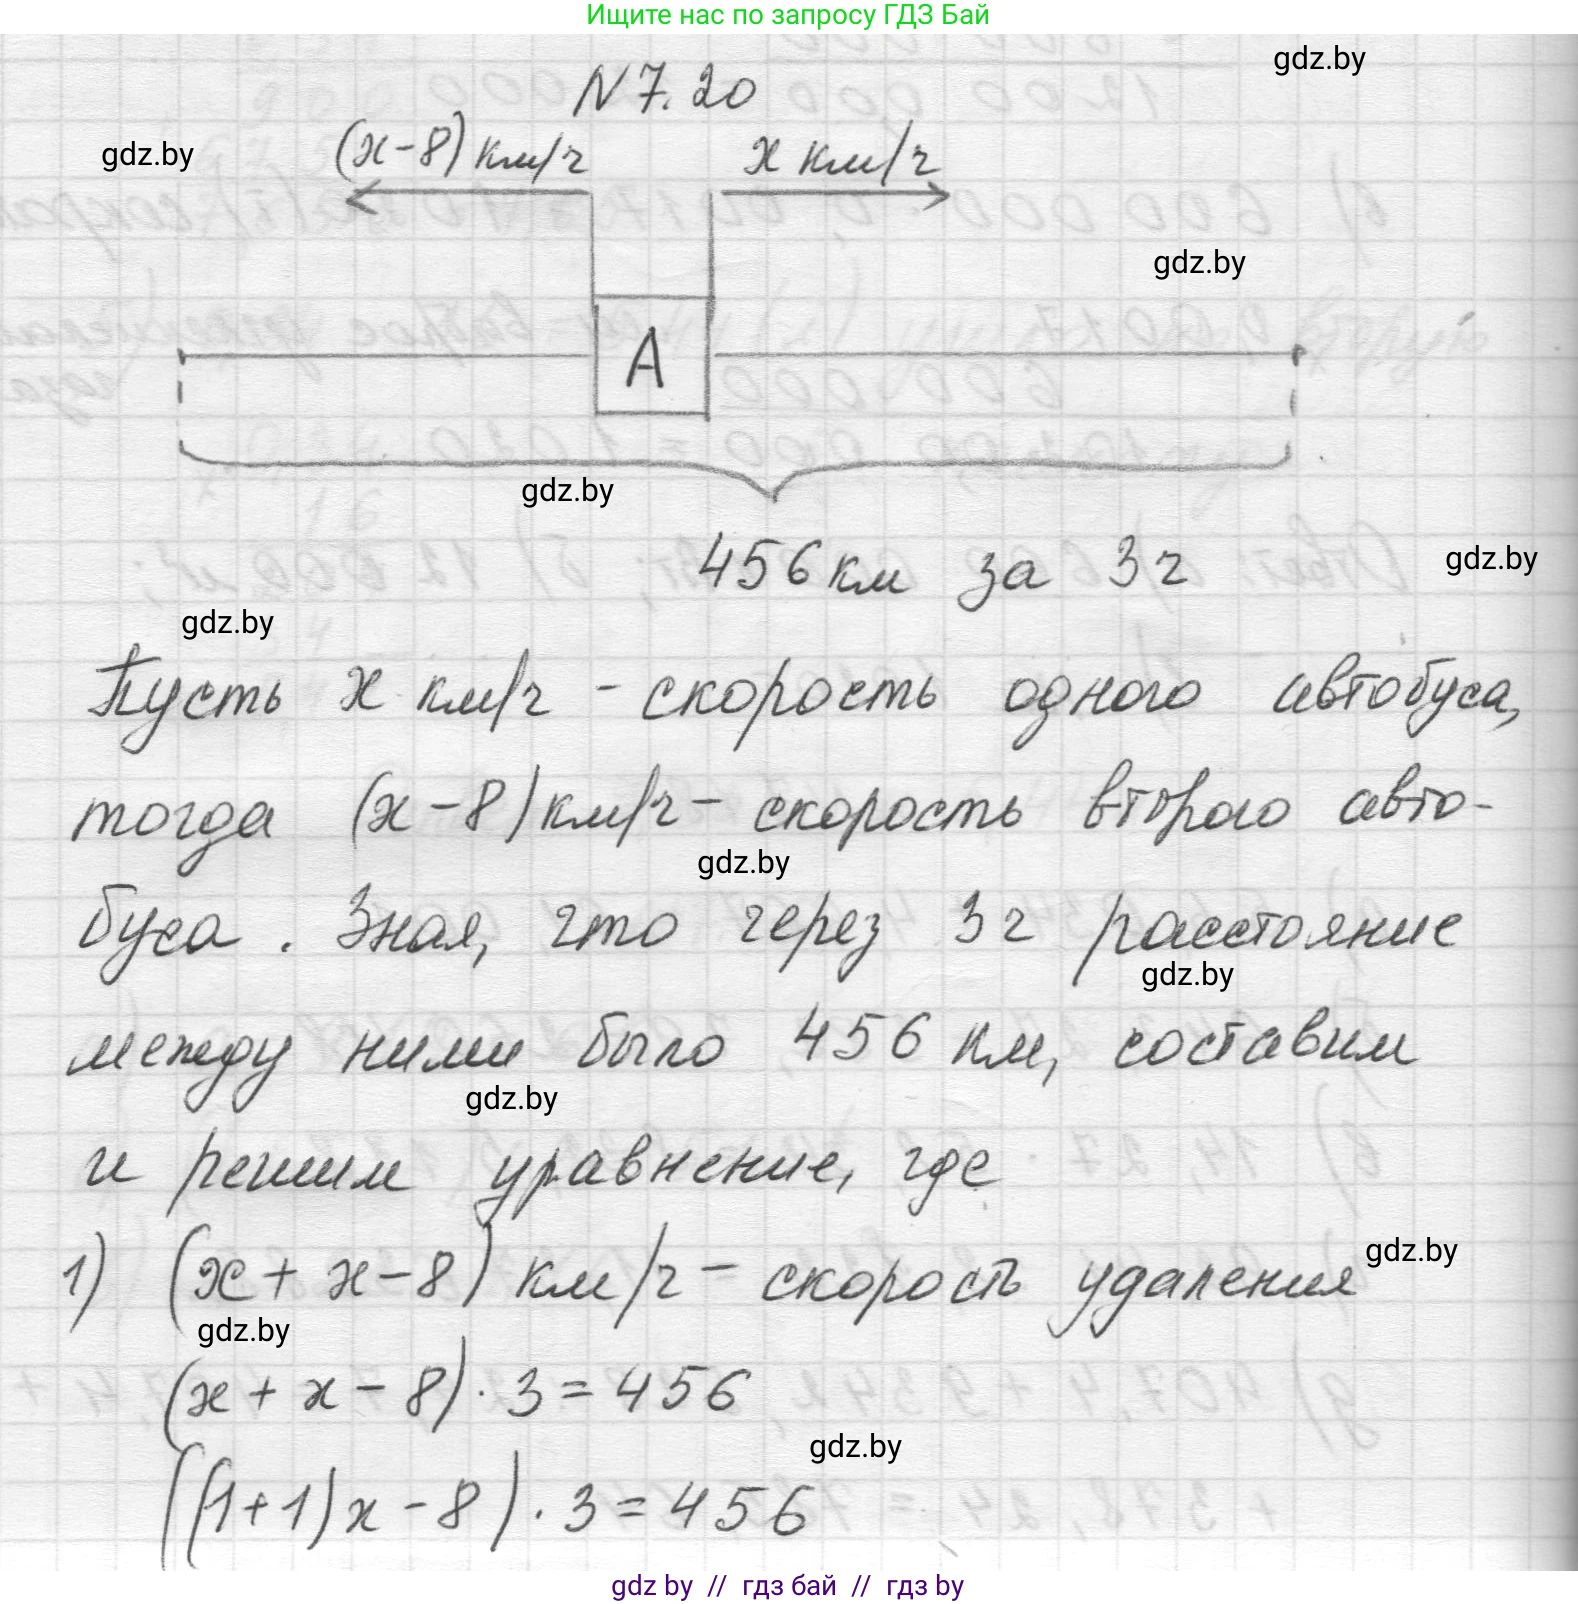 Ищите нас по запросу ГДЗ Бай
gdz.by
N 7.20
gdz.by
(x-8) км/ч x км/ч
gdz.by
A
gdz.by
456 км за 3 ч
gdz.by
gdz.by
Пусть x км/ч - скорость одного автобуса,
тогда (x-8) км/ч - скорость второго авто-
gdz.by
буса. Зная, что через 3 ч расстояние
gdz.by
между ними было 456 км, составим
gdz.by
и решим уравнение, где
gdz.by
1) (x + x - 8) км/ч - скорость удаления
gdz.by
(x + x - 8) · 3 = 456
gdz.by
((1+1)x - 8) · 3 = 456
gdz by // гдз бай // гдз by